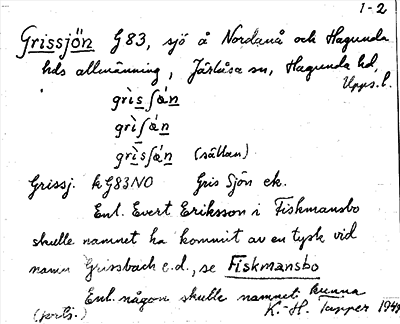 1-2
Grissjön G83, sjö å Nordanå och Hagunda
hds allmänning, Järlåsa sn, Hagunda hd,
Upps. l.
grìsʃǻn
grìʃǻn
grìsʃǻn (sällan)
Grissj. kG83NO Gris Sjön ek.
Enl. Evert Eriksson i Fiskmansbo
skulle namnet ha kommit av en tysk vid
namn Grissbach e.d., se Fiskmansbo
Enl. någon skulle namnet kunna
(forts.) K.-H. Tapper